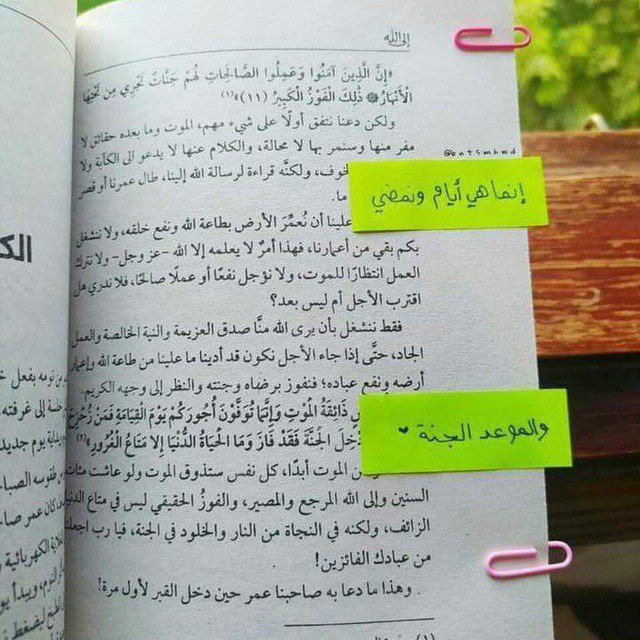 إلى الله
«إِنَّ الَّذِينَ آمَنُوا وَعَمِلُوا الصَّالِحَاتِ لَهُمْ جَنَّاتٌ تَجْرِي مِن تَحْتِهَا
الْأَنْهَارُ ذَٰلِكَ الْفَوْزُ الْكَبِيرُ (١١)»(١)
ولكن دعنا نتفق أولًا على شيء مهم، الموت وما بعده حقائق لا
مفر منها وسنمر بها لا محالة، والكلام عنها لا يدعو إلى الكآبة ولا
الخوف، ولكنَّه قراءة لرسالة الله إلينا، طال عمرنا أو قصر
@ent9mhmd
إنما هي أيام ونمضي
علينا أن نُعمِّرَ الأرض بطاعة الله ونفع خلقه، ولا ننشغل
بكم بقي من أعمارنا، فهذا أمرٌ لا يعلمه إلا الله -عز وجل- ولا نترك
العمل انتظارًا للموت، ولا نؤجل نفعًا أو عملًا صالحًا، فلا ندري هل
اقترب الأجل أم ليس بعد؟
فقط ننشغل بأن يرى الله منَّا صدق العزيمة والنية الخالصة والعمل
الجاد، حتَّى إذا جاء الأجل نكون قد أدينا ما علينا من طاعة الله وإعمار
أرضه ونفع عباده؛ فنفوز برضاه وجنته والنظر إلى وجهه الكريم.
ذَائِقَةُ الْمَوْتِ وَإِنَّمَا تُوَفَّوْنَ أُجُورَكُمْ يَوْمَ الْقِيَامَةِ فَمَن زُحْزِحَ
الْجَنَّةَ فَقَدْ فَازَ وَمَا الْحَيَاةُ الدُّنْيَا إِلَّا مَتَاعُ الْغُرُورِ»(٢)
والموعد الجنة ♥
من الموت أبدًا، كل نفس ستذوق الموت ولو عاشت مئات
السنين وإلى الله المرجع والمصير، والفوزُ الحقيقي ليس في متاع الدنيا
الزائف، ولكنه في النجاة من النار والخلود في الجنة، فيا رب اجعلنا
من عبادك الفائزين!
وهذا ما دعا به صاحبنا عمر حين دخل القبر لأول مرة!